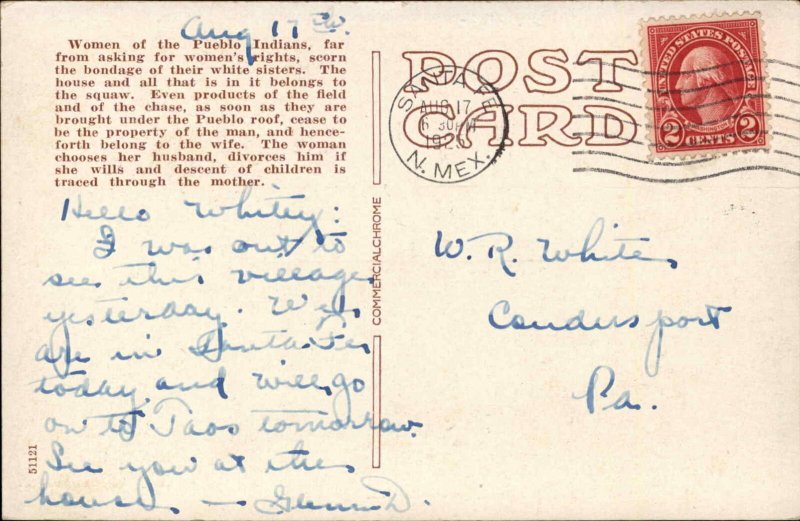 Aug 17
Women of the Pueblo Indians, far
from asking for women's rights, scorn
the bondage of their white sisters. The
house and all that is in it belongs to
the squaw. Even products of the field
and of the chase, as soon as they are
brought under the Pueblo roof, cease to
be the property of the man, and hence-
forth belong to the wife. The woman
chooses her husband, divorces him if
she wills and descent of children is
traced through the mother.
Hello Whitey:
I was out to
see this village
yesterday. We
are in Santa Fe
today and will go
on to Taos tomorrow.
See you at the
house. — Glenn D.
51121
COMMERCIALCHROME
POST
CARD
SANTA FE
AUG 17
6 30 PM
N. MEX.
UNITED STATES POSTAGE
2 2
CENTS
W. R. White
Coudersport
Pa.